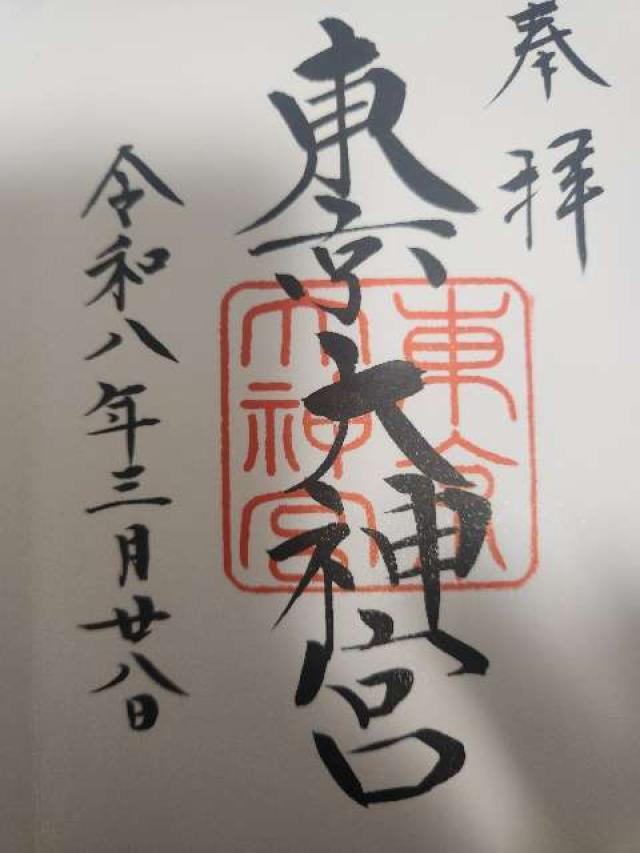 奉拝
東京大神宮
東京大神宮
令和八年三月廿八日